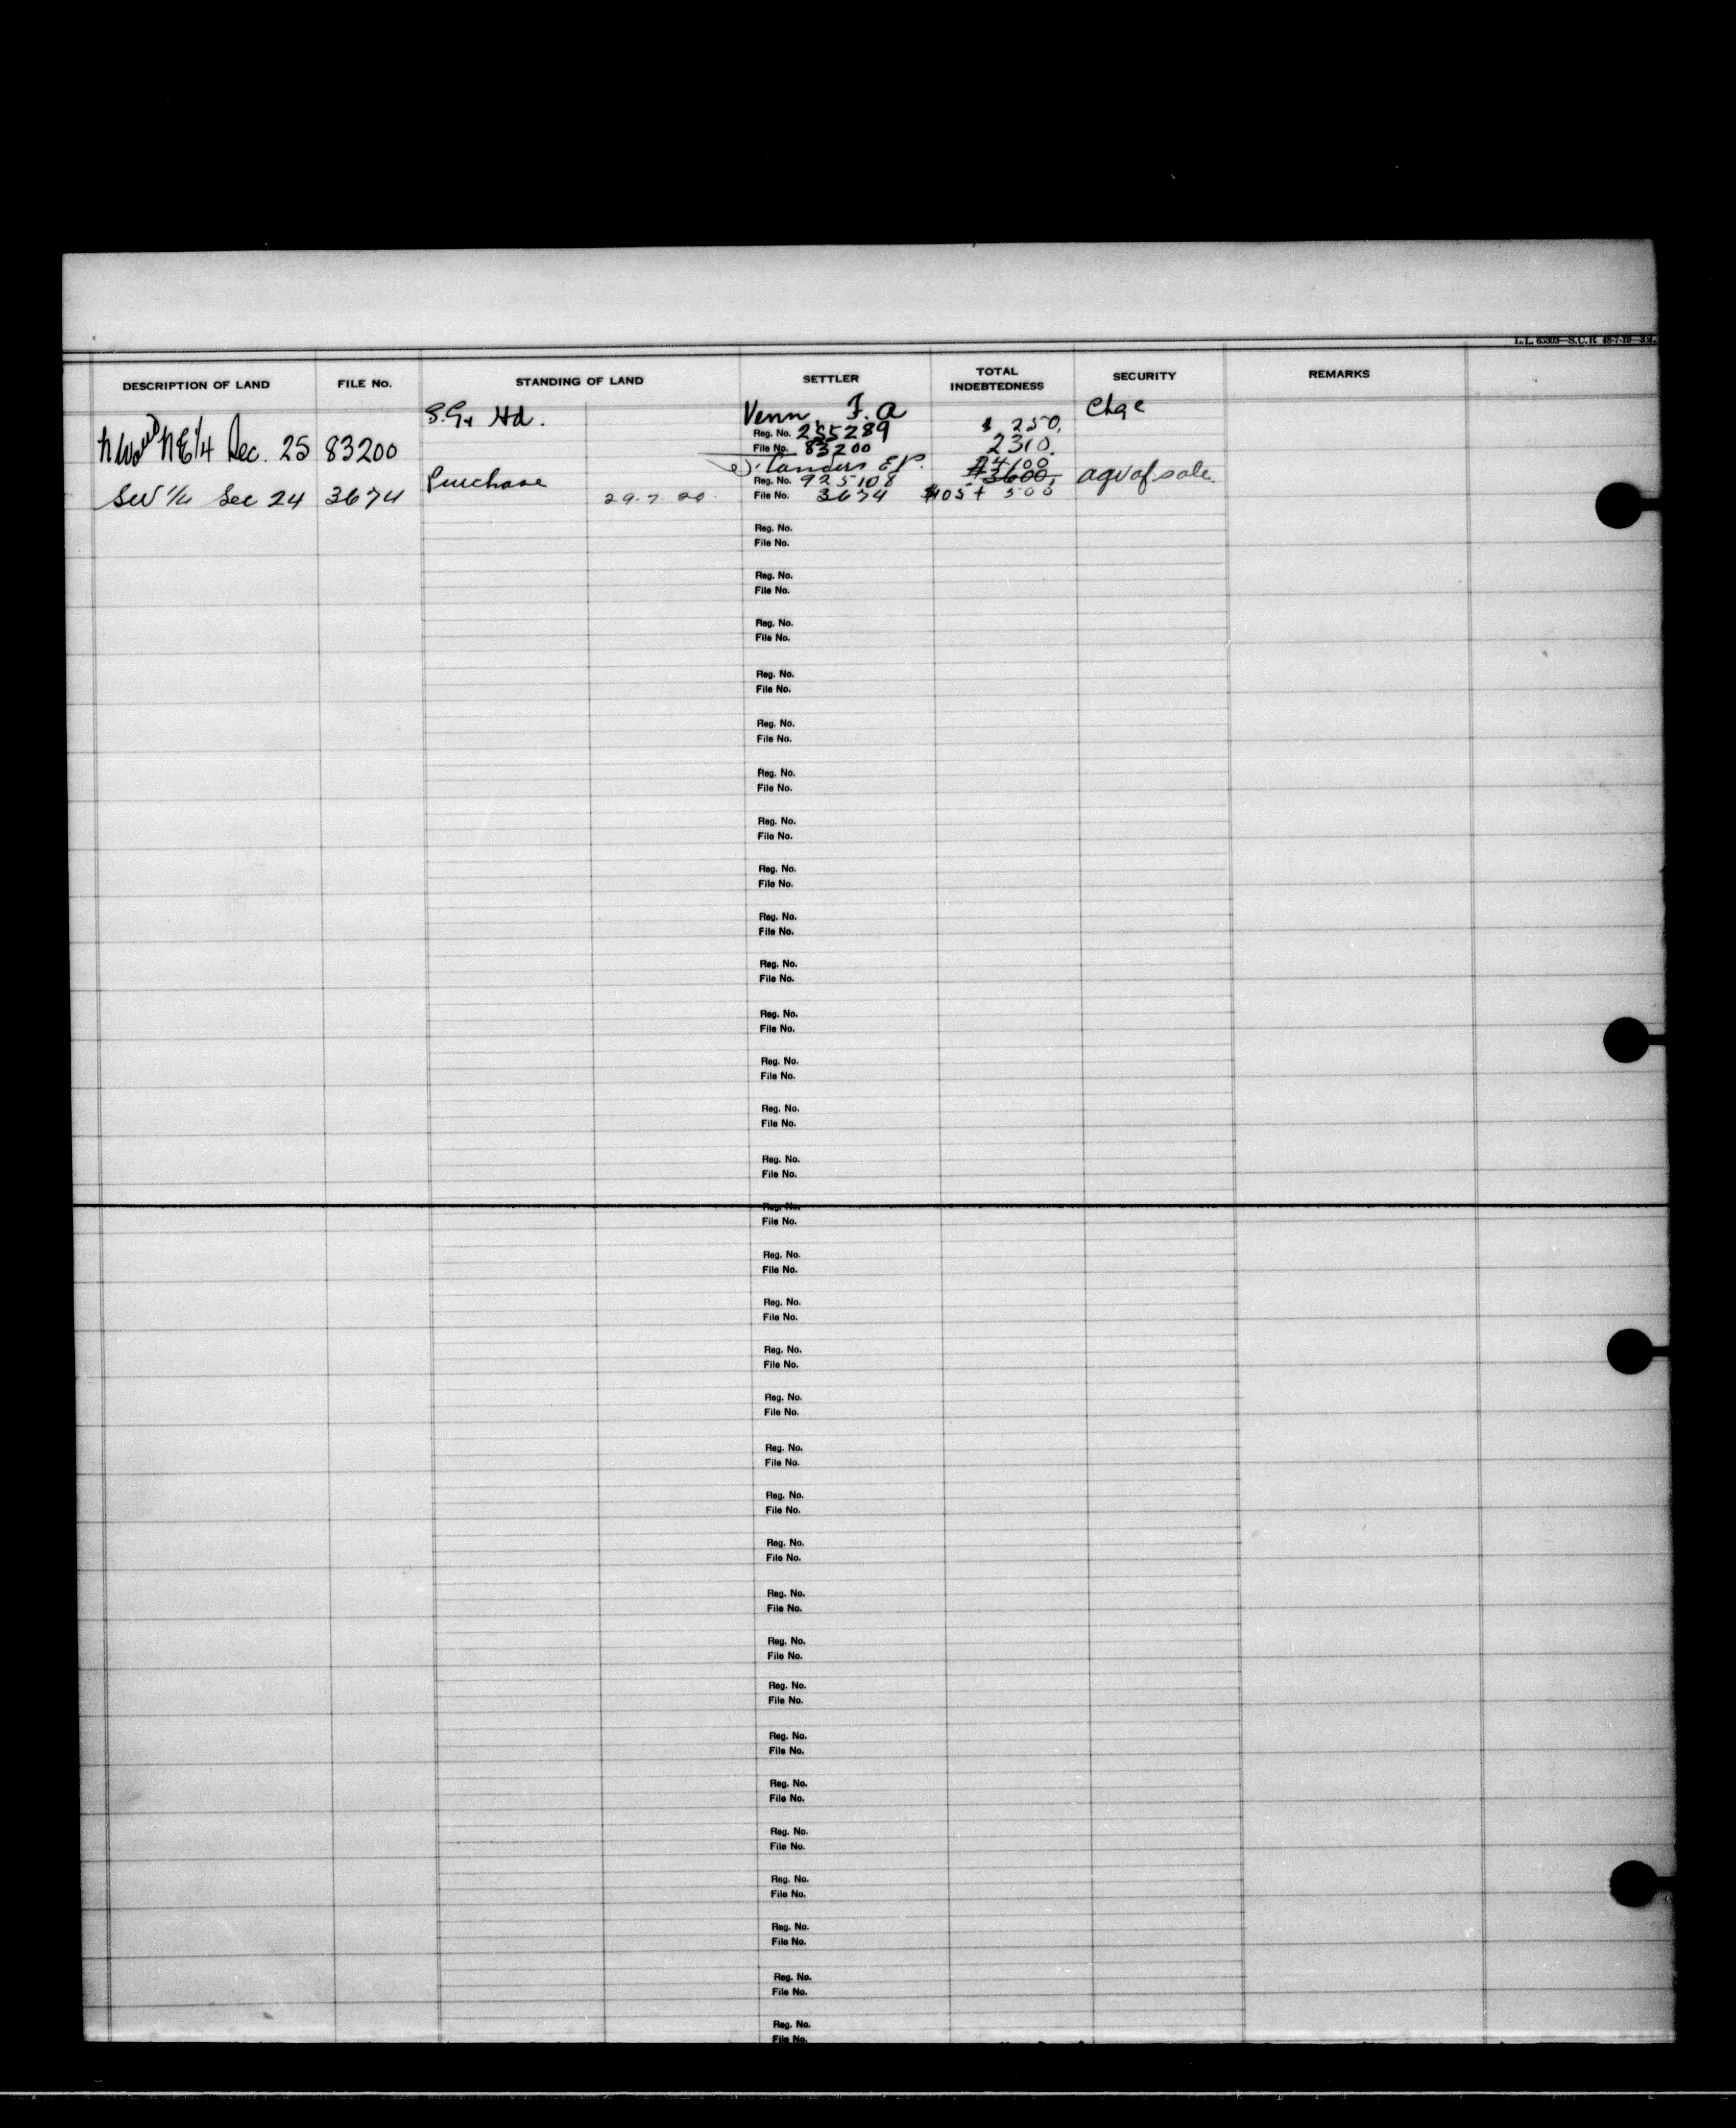 DESCRIPTION OF LAND FILE No. STANDING OF LAND SETTLER TOTAL INDEBTEDNESS SECURITY REMARKS
S.G. Hd. Venn F. A $ 250. Chge
Reg. No. 255289
NW and NE 1/4 Sec. 25 83200 File No. 83200 2310.
Landers E.P. $4100
Purchase Reg. No. 925108 $3600. agr of sale
SW 1/4 Sec 24 3674 29.7.20. File No. 3674 $105 + 500
Reg. No.
File No.
Reg. No.
File No.
Reg. No.
File No.
Reg. No.
File No.
Reg. No.
File No.
Reg. No.
File No.
Reg. No.
File No.
Reg. No.
File No.
Reg. No.
File No.
Reg. No.
File No.
Reg. No.
File No.
Reg. No.
File No.
Reg. No.
File No.
Reg. No.
File No.
Reg. No.
File No.
Reg. No.
File No.
Reg. No.
File No.
Reg. No.
File No.
Reg. No.
File No.
Reg. No.
File No.
Reg. No.
File No.
Reg. No.
File No.
Reg. No.
File No.
Reg. No.
File No.
Reg. No.
File No.
Reg. No.
File No.
Reg. No.
File No.
Reg. No.
File No.
Reg. No.
File No.
Reg. No.
File No.
Reg. No.
File No.
Reg. No.
File No.